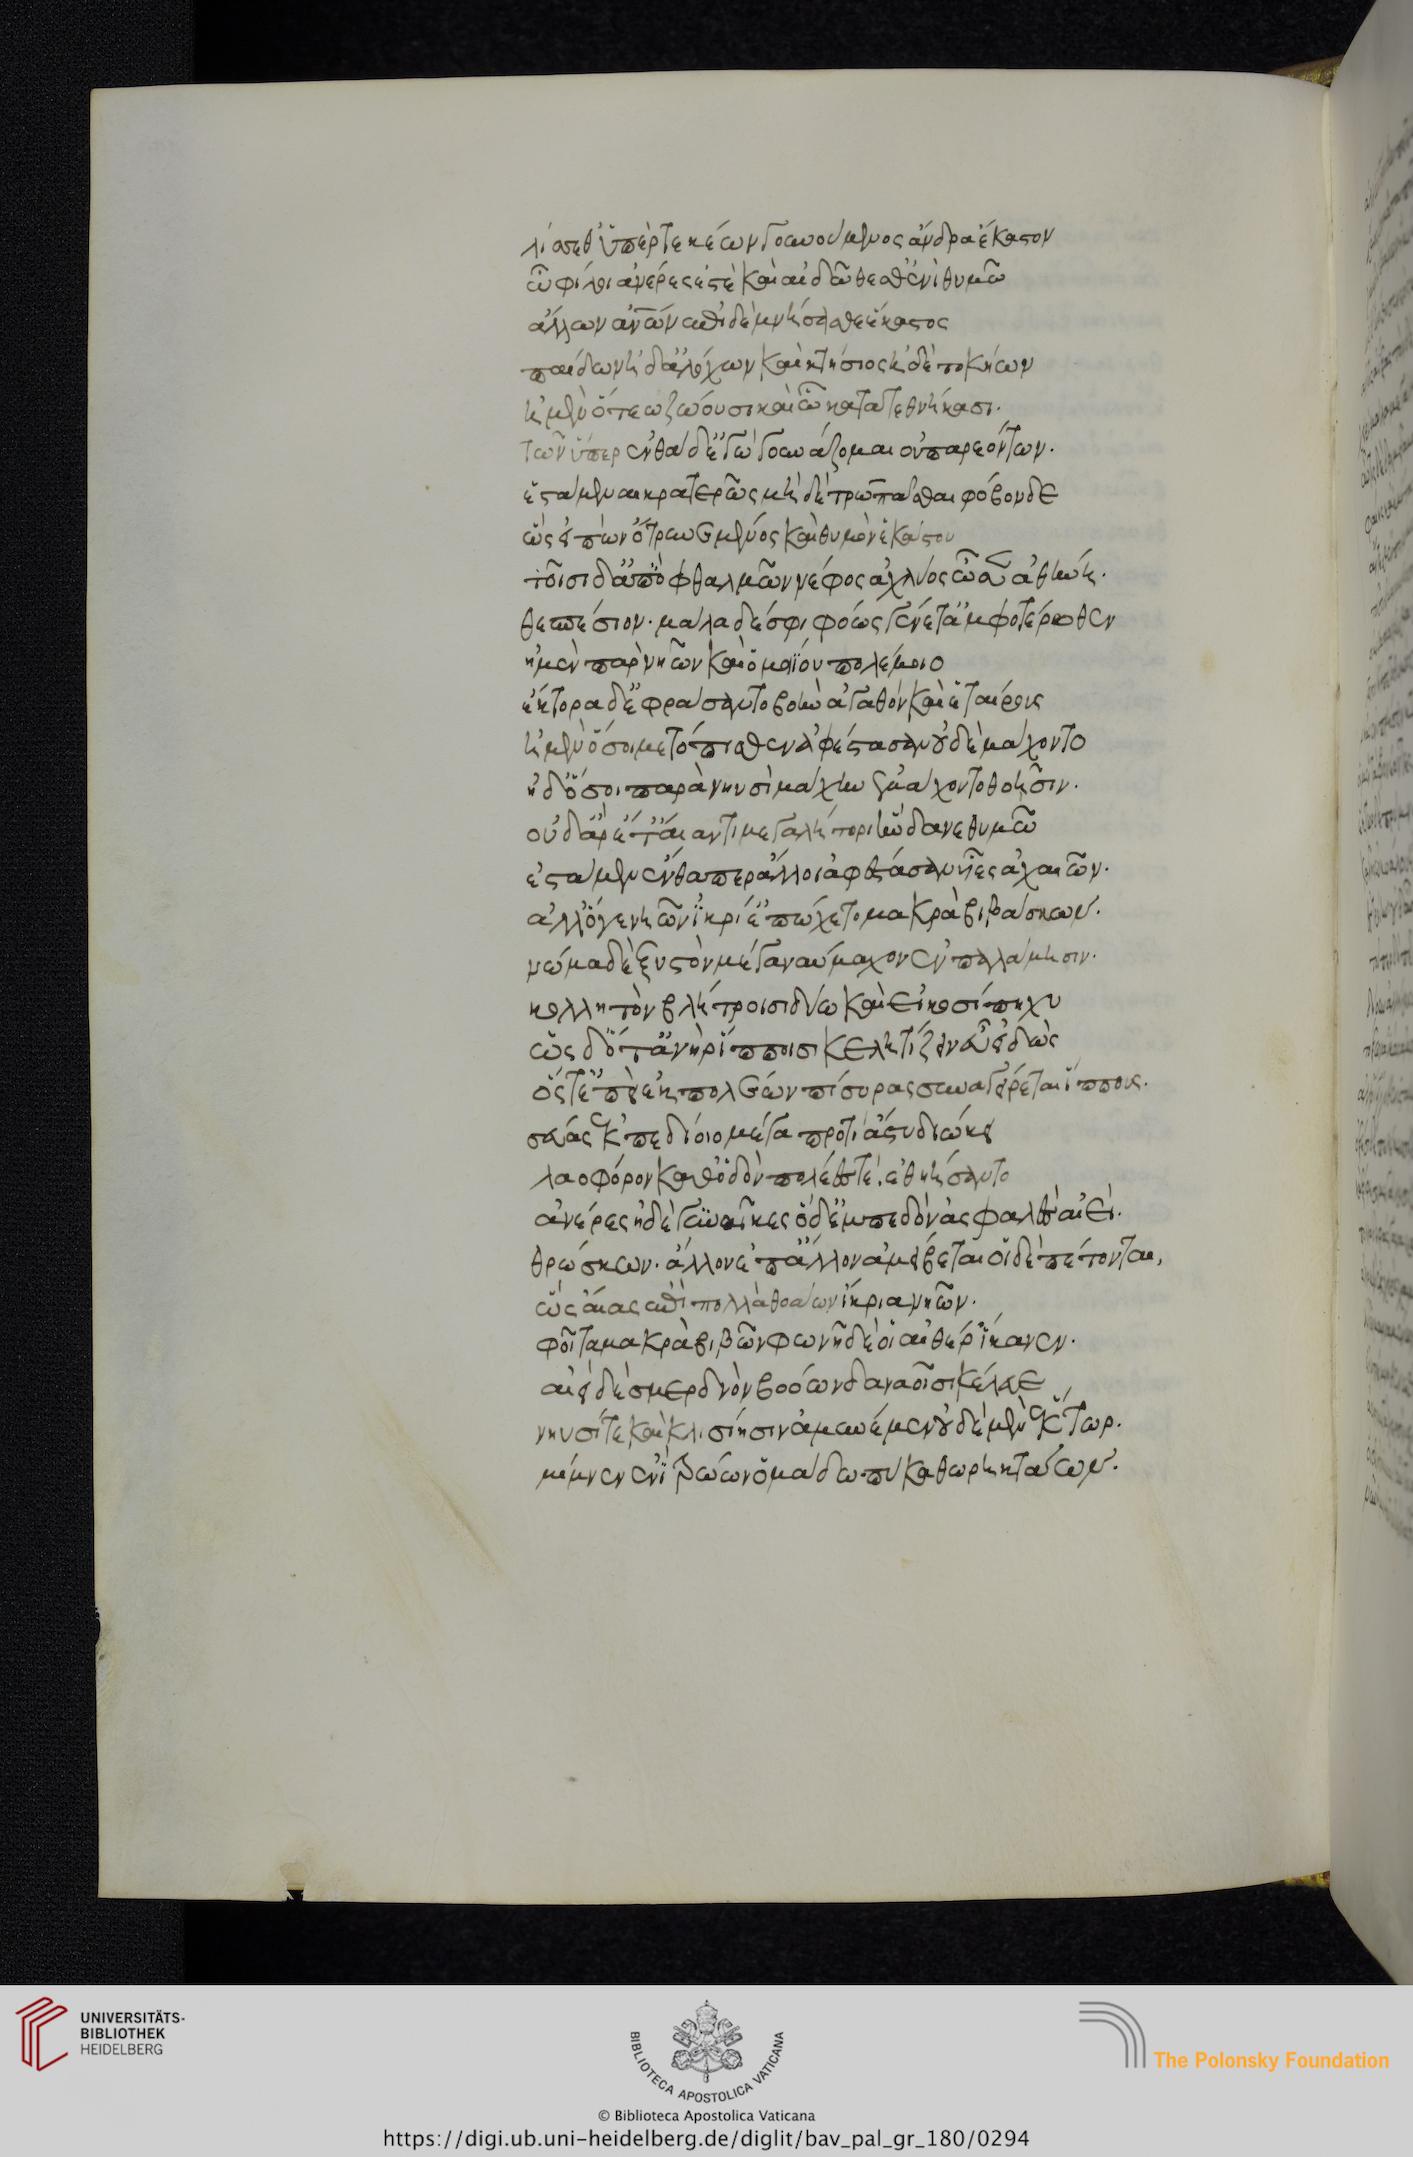 λίσσεθ' ὑπὲρ τεκέων γουνούμενος ἄνδρα ἕκαστον
ὦ φίλοι ἀνέρες ἐστὲ καὶ αἰδῶ θέσθ' ἐνὶ θυμῶ
ἄλλων ἀνων ἐπὶ δὲ μνήσασθε ἕκαστος
παίδων ἠδ' ἀλόχων καὶ κτήσιος ἠδὲ τοκήων
ἠμὲν ὅτεω ζώουσι καὶ ὧ κατατεθνήκασι.
τῶν ὕπερ ἐνθάδ' ἐγὼ γουνάζομαι οὐ παρεόντων.
ἑστάμεναι κρατερῶς μηδὲ τρωπᾶσθαι φόβονδε
ὣς εἰπὼν ὄτρυνε μένος καὶ θυμὸν ἑκάστου
τοῖσι δ' ἀπ' ὀφθαλμῶν νέφος ἀχλύος ὦσεν ἀθήνη.
θεσπέσιον. μάλα δέ σφι φόως γένετ' ἀμφοτέρωθεν
ἠμὲν πὰρ νηῶν καὶ ὁμοιΐου πολέμοιο
ἕκτορα δὲ φράσαντο βοὴν ἀγαθὸν καὶ ἑταίρους
ἠμὲν ὅσοι μετόπισθεν ἀφέστασαν οὐδὲ μάχοντο
ἠδ' ὅσοι παρὰ νηυσὶ μάχην ἐμάχοντο θοῆσιν.
οὐδ' ἄρ' ἔτ' αἴαντι μεγαλήτορι ἥνδανε θυμῶ
ἑστάμεν ἔνθα περ ἄλλοι ἀφέστασαν υἷες ἀχαιῶν.
ἀλλ' ὅγε νηῶν ἴκρι' ἐπώχετο μακρὰ βιβάσκων.
νώμα δὲ ξυστὸν μέγα ναύμαχον ἐν παλάμησιν.
κολλητὸν βλήτροισι δύω καὶ εἰκοσίπηχυ
ὡς δ' ὅτ' ἀνὴρ ἵπποισι κελητίζειν εὖ εἰδὼς
ὅς τ' ἐπεὶ ἐκ πολέων πίσυρας συναγείρεται ἵππους.
σεύας ἐκ πεδίοιο μέγα προτὶ ἄστυ διώκει
λαοφόρον καθ' ὁδὸν πολέες τέ ἑ θηήσαντο
ἀνέρες ἠδὲ γυναῖκες ὁ δ' ἔμπεδον ἀσφαλὲς αἰεὶ.
θρώσκων. ἄλλον ἐπ' ἄλλον ἀμείβεται οἱ δὲ πέτονται,
ὣς αἴας ἐπὶ πολλὰ θοάων ἴκρια νηῶν.
φοῖτα μακρὰ βιβῶν φωνὴ δέ οἱ αἰθέρ' ἵκανεν.
αἰεὶ δὲ σμερδνὸν βοόων δαναοῖσι κέλευε
νηυσί τε καὶ κλισίησιν ἀμυνέμεν οὐδὲ μὲν ἕκτωρ.
μίμνεν ἐνὶ τρώων ὁμάδω πύκα θωρηκτάων.
UNIVERSITÄTS-
BIBLIOTHEK
HEIDELBERG
BIBLIOTECA APOSTOLICA VATICANA
The Polonsky Foundation
© Biblioteca Apostolica Vaticana
https://digi.ub.uni-heidelberg.de/diglit/bav_pal_gr_180/0294